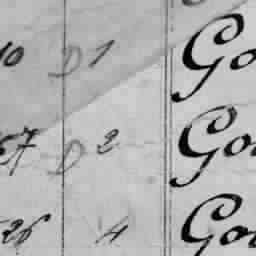 10 D 1 Go
57 D 2 Go
26 4 Go